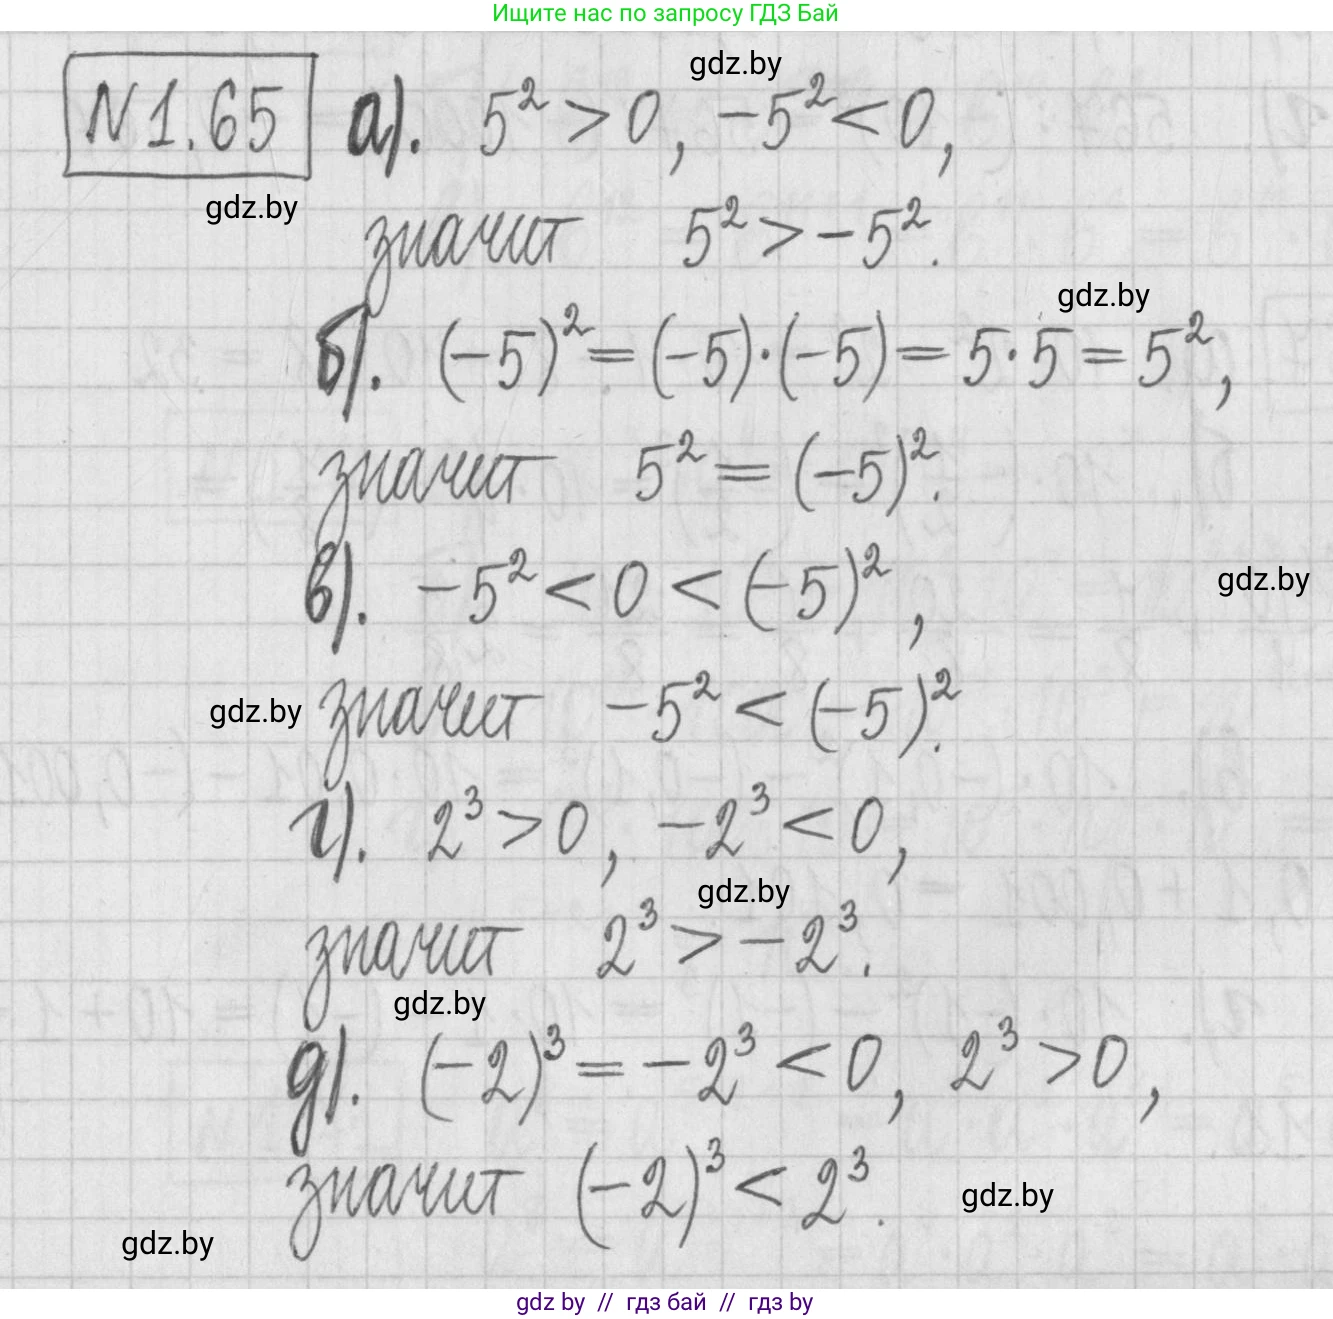 Ищите нас по запросу ГДЗ Бай
gdz.by
N1.65 а). 5² > 0, -5² < 0,
gdz.by
значит 5² > -5².
gdz.by
б). (-5)² = (-5)·(-5) = 5·5 = 5²,
значит 5² = (-5)².
в). -5² < 0 < (-5)²,
gdz.by
gdz.by
значит -5² < (-5)².
г). 2³ > 0, -2³ < 0,
gdz.by
значит 2³ > -2³.
gdz.by
д). (-2)³ = -2³ < 0, 2³ > 0,
значит (-2)³ < 2³.
gdz.by
gdz.by
gdz by // гдз бай // гдз by